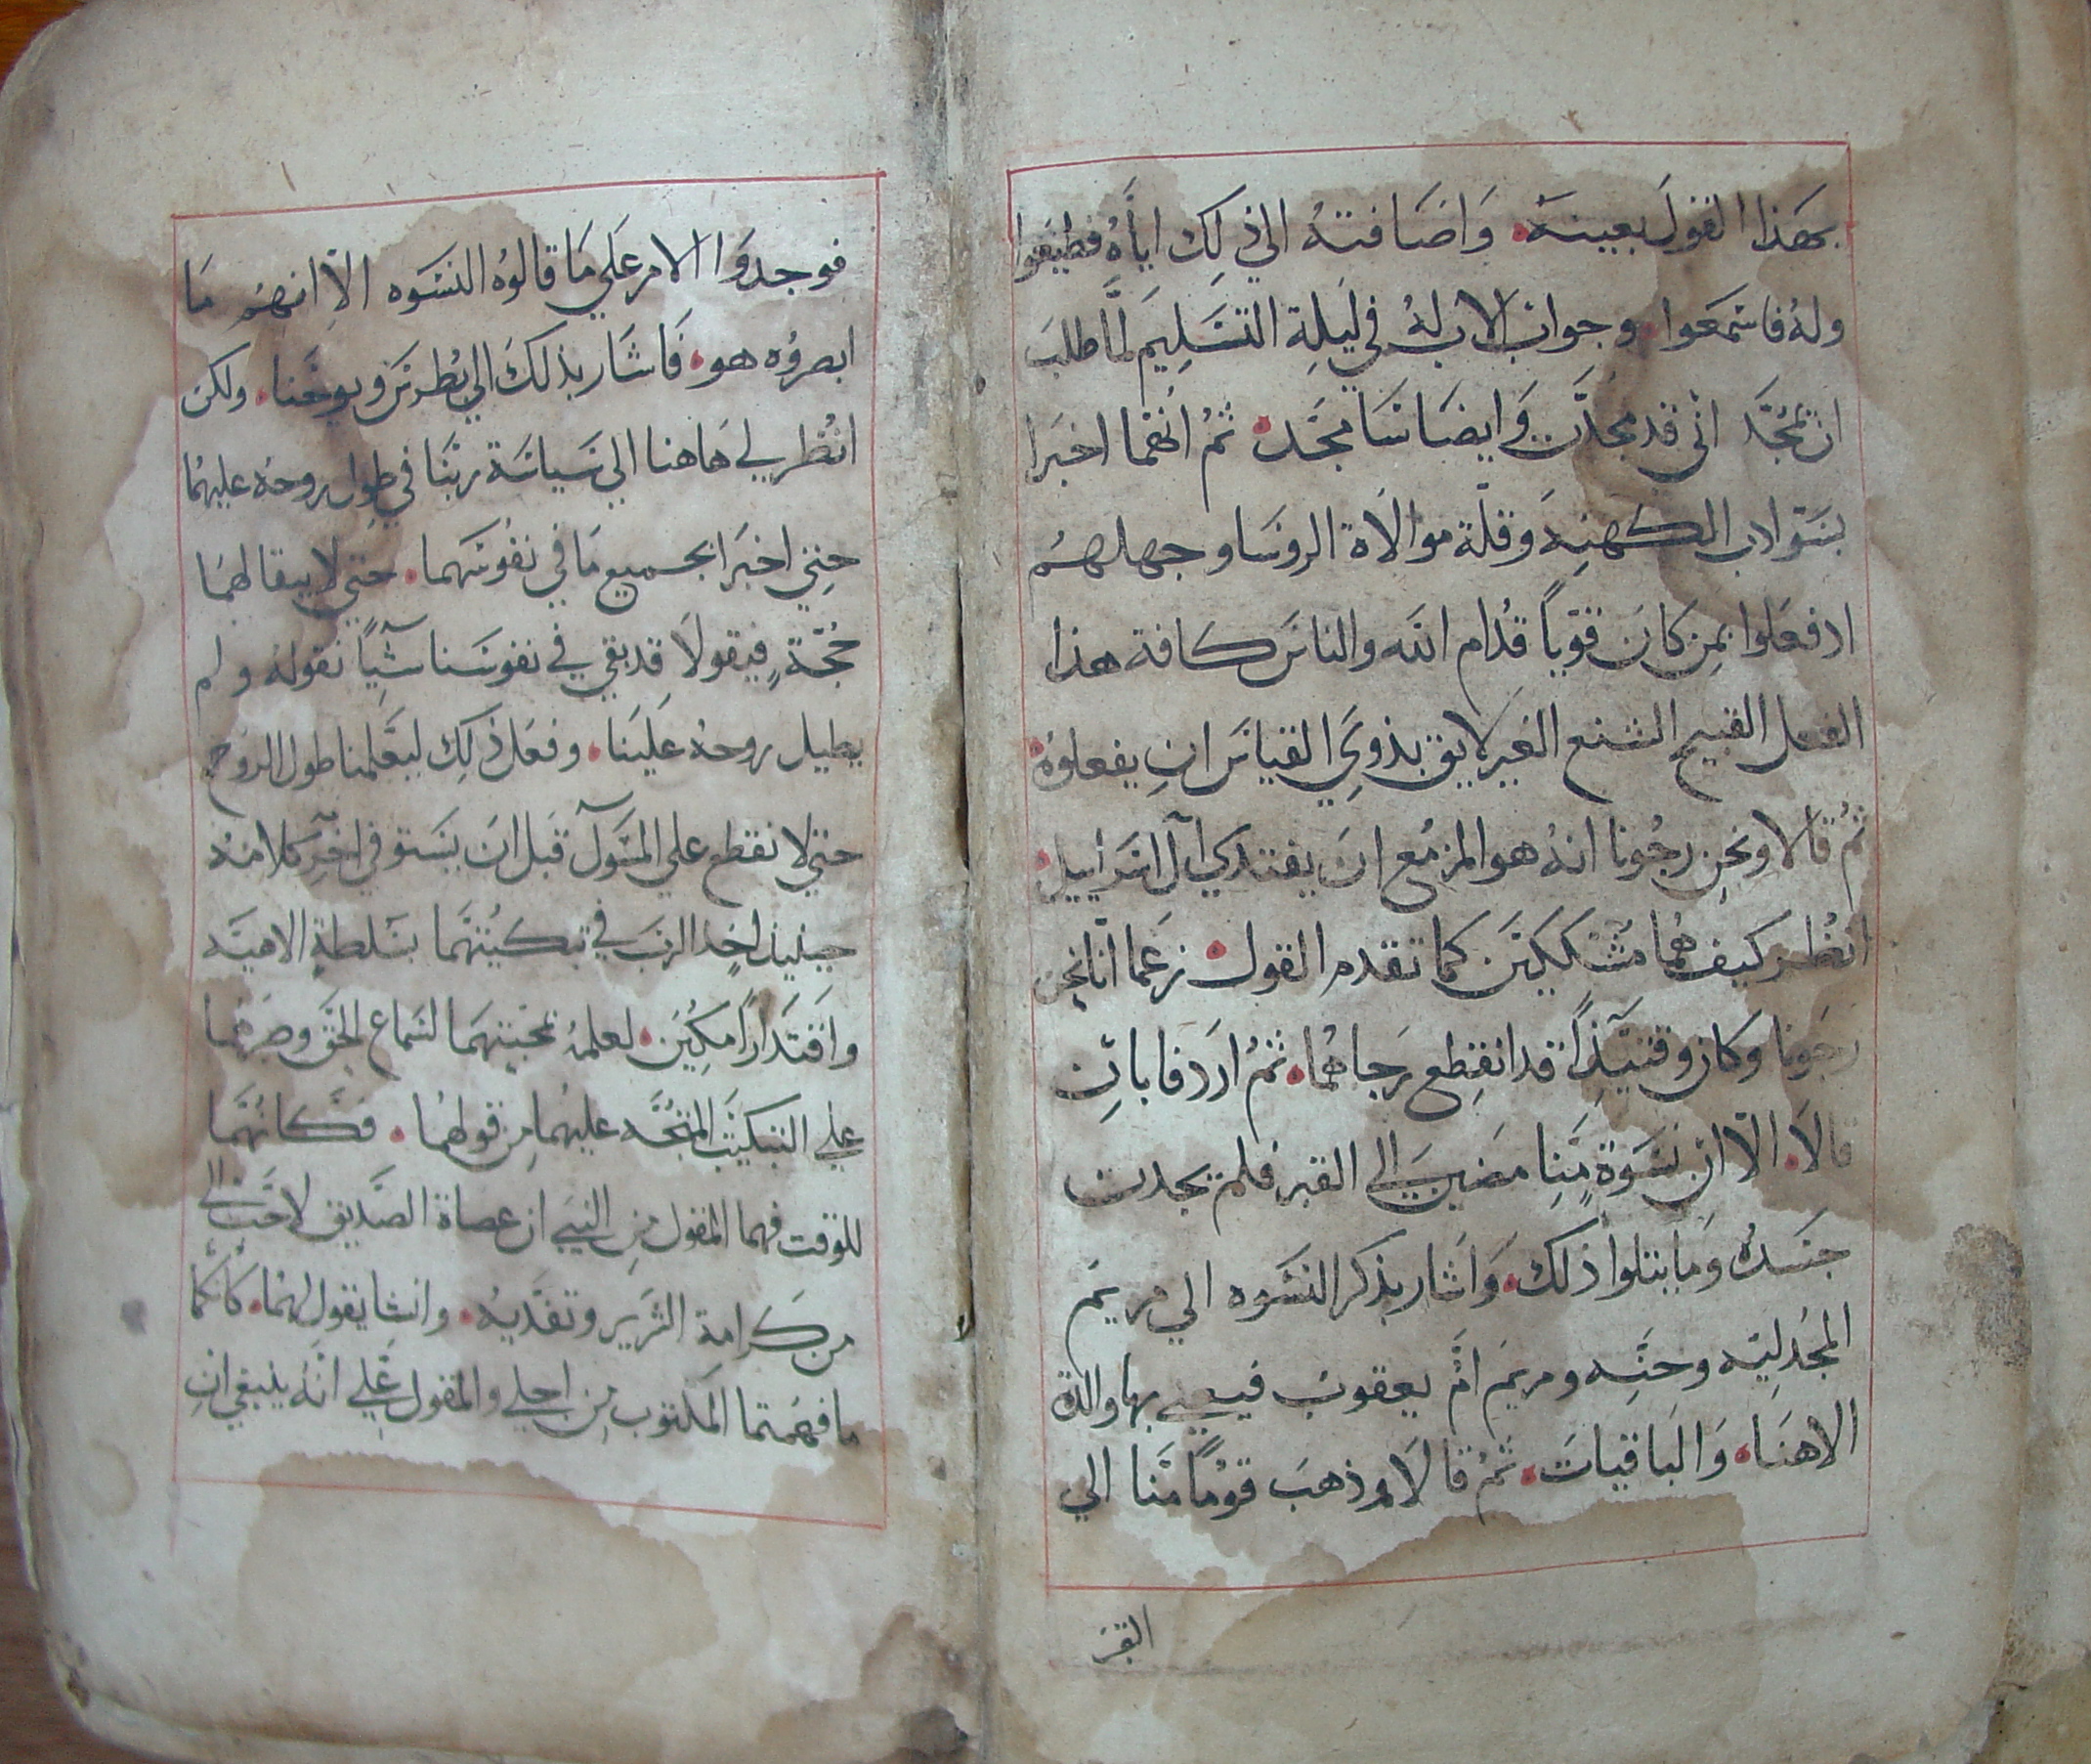 بهذا القول بعينه. وَاضَافته الي ذلِك ايَّاهُ فطيعَوا
ولهُ فاسمَعوا. وجواب الاب لهُ في ليلِة التسَلِيمَ لمَّا طلبَ
ان تمجَّد اني قد مجدَّت وَايضَا سَا مجَّد. ثمُ انهما اخبرَا
بسَو اداب الكهنِهَ وقلّة موالَاة الروسَا وجهلهمُ
اد فعَلوا بمِن كانَ قوّياً قدُام الله والناسَ كافة هذا
الفعل القبيح الشنع الغيَر لايق بذويِ القياسَ انِ يفعلوُهُ.
ثمُ قالا ونحنِ رجُونا انهُ هو المزمُع ان يفتدي ال اسَراييل.
انظُر كيفُ همُا مُشككيَن كما تقدم القول. زعَما انّا نحن
رجَونا وَكان وقتيِّذاً قد انقطِع رَجاهُما. ثمُ اردَفا باِن
قالَا. الّا ان نسَوَةٍ مِنّا مضين الي القبَر فلم يجدن
جسَدهُ وَمايتلوا ذلك. وَاشَار بذكر النسَوه الي مريَم
المجُدِليَه وحنّه ومريَم امُّ يعقوبُ فيعني بها والدة
الاهنَا. وَالبَاقياتَ. ثمُ قالَا وذهبَ قومُاً منَّا الي
القبَر
فوجدوَا الامر عَلي مَا قالوُه النسَوه الّا انهمُ مَا
ابصروُه هو. فَاشَار بذلكَ الي بُطرسَ ويوحَنا. ولكن
انظُر لي هَاهنا الي سَياسَة ربّنَا في طول روحهُ عليهمُا
حتِي اخبَرا بجميع مَا في نفوسَهما. حتي لا يبقا لهمَا
حُجّةٍ فيقولَا قد بقي في نفوسَنا شَيِاً نقولهُ ولم
يطيل روحهُ علَينَا. وفعَل ذلِك ليعَلمنا طول الروح
حتي لا نقطع علي المسَول قبَل انَ يسَتوفي اخِر كلامهُ
حينيذ اخذ الربَ في تبكيُتهَما بسَلطةٍ الاهيَه
وَاقتَداراً مكيُن. لعلمهُ بمحبتهمَا لسَماع الحَق وصبَرهما
علي التبكيتَ المتجَّه عليهُما مِن قولهمُا. فكَانهُما
للوقت فهما المقول مِن النبَي ان عصاة الصَديق لاحَب الي
من كَرامة الشرَير وتقدَيهُ. وانشِا يقول لهمُا. كَانكّما
ما فهمُتما المكتوب مِن اجلي والمقول عَلي انهَ ينبغي انِ